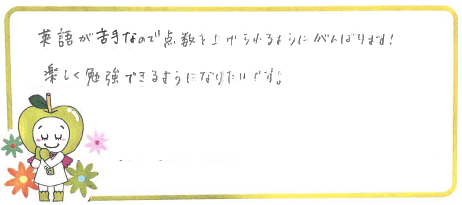 英語が苦手なので点数を上げられるようにがんばります!
楽しく勉強できるようになりたいです!